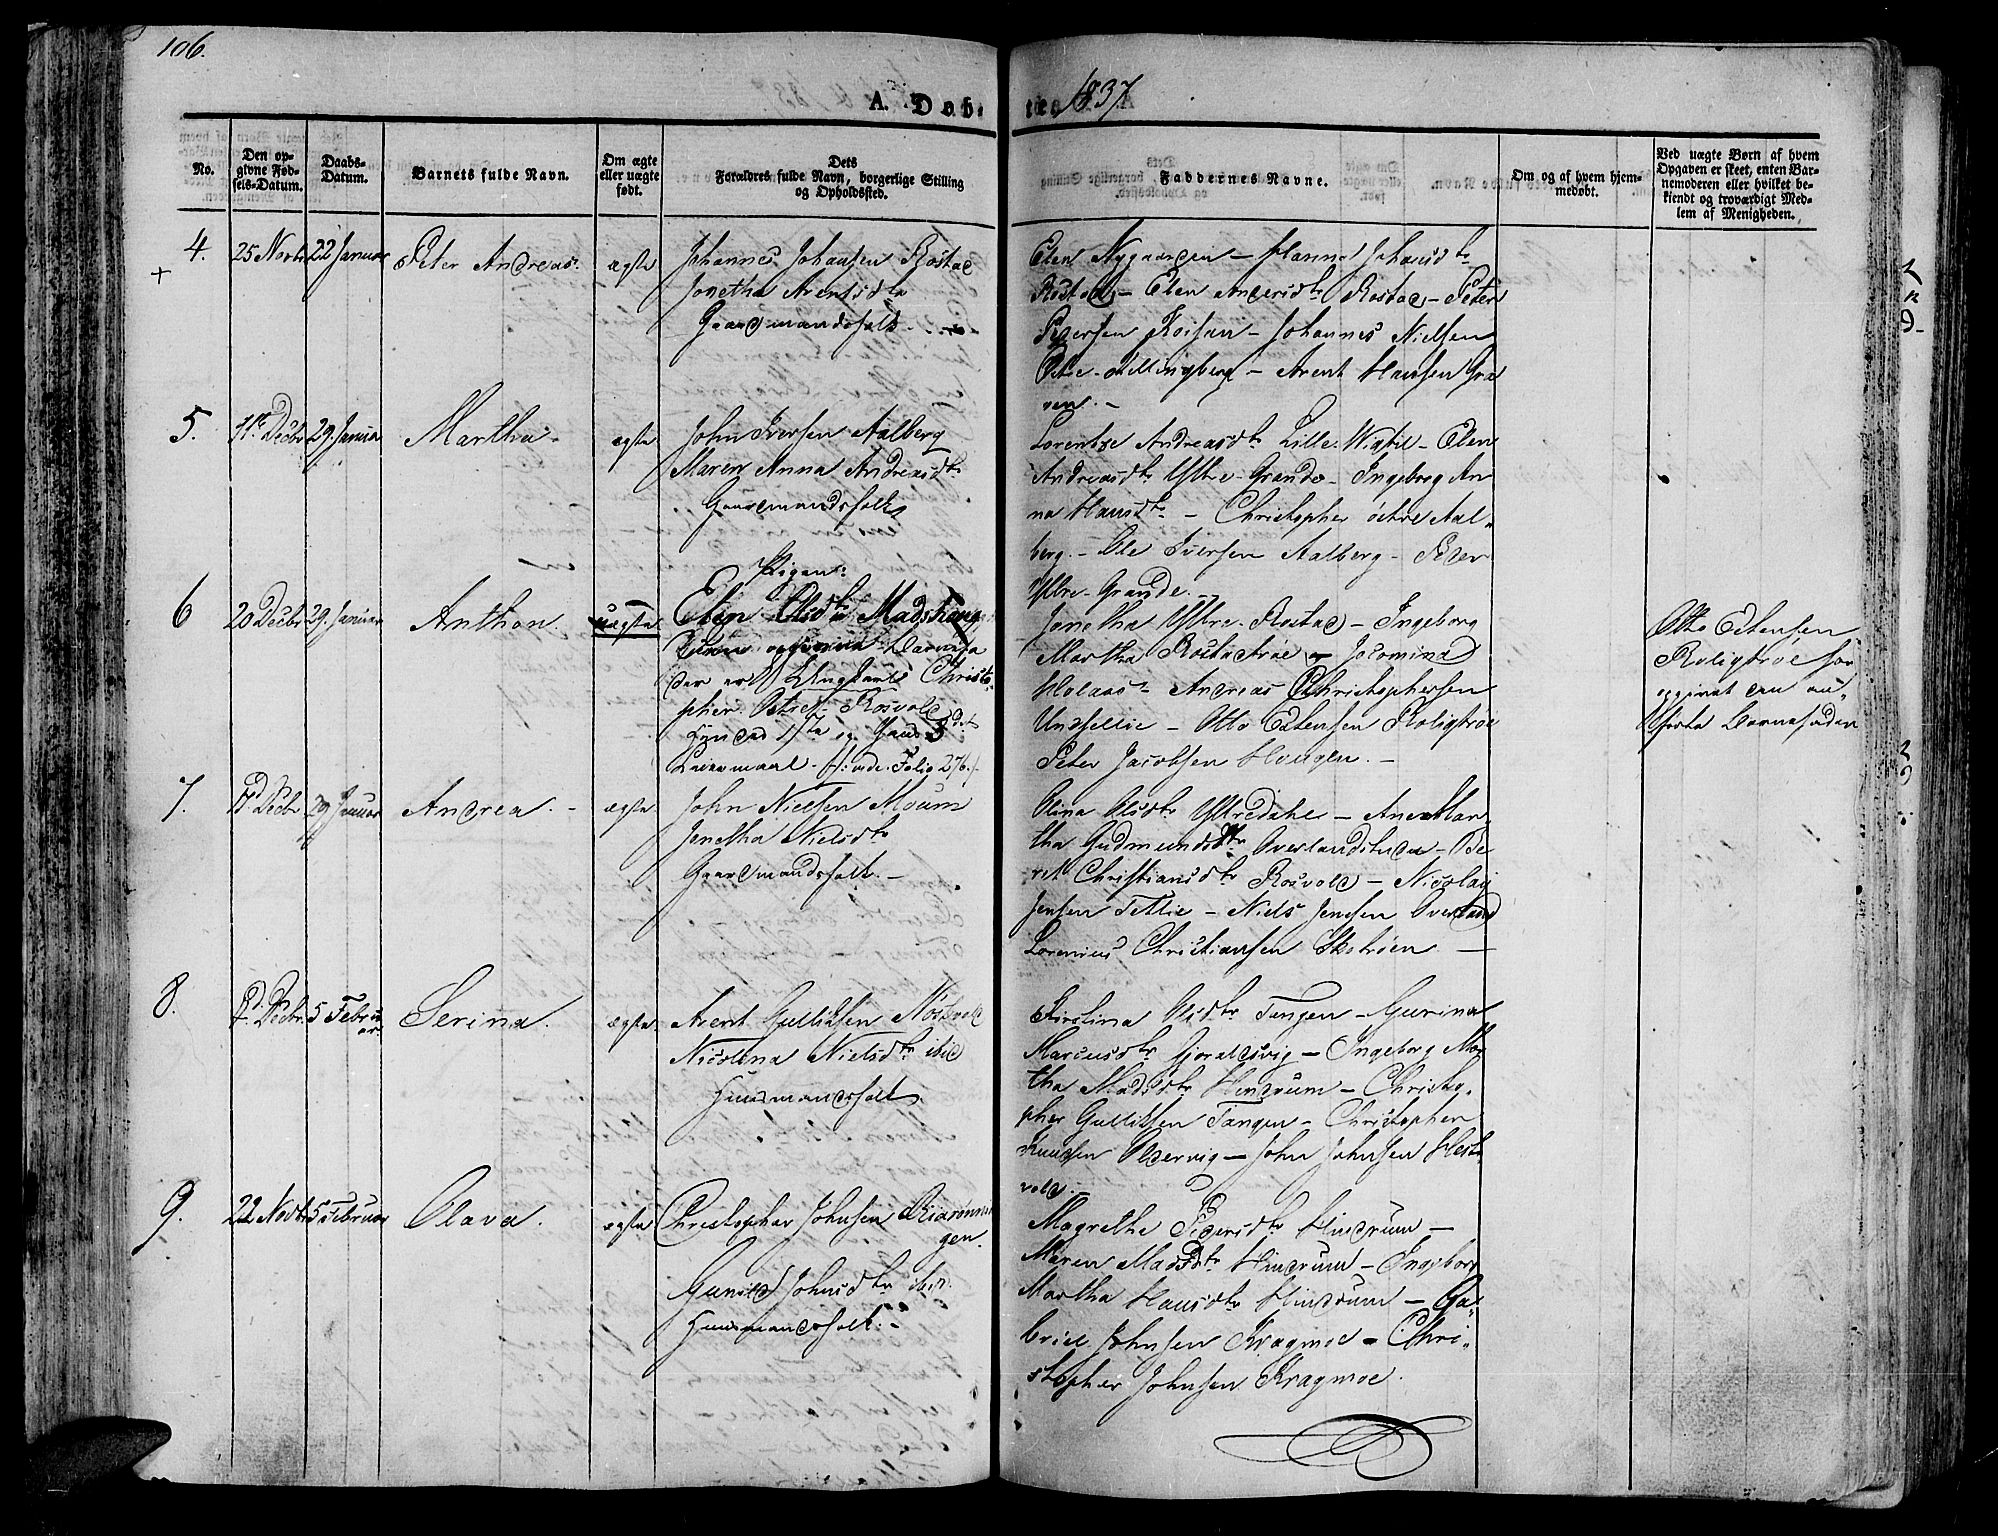 106.
A. Døb-
te
1837
No.
Den op-
givne Fød-
sels-Datum.
Daabs-
Datum.
Barnets fulde Navn.
Om ægte
eller uægte
født.
Dets
Forældres fulde Navn, borgerlige Stilling
og Opholdssted.
Faddernes Navne.
Om og af hvem hjem-
medøbt.
Ved uægte Børn af hvem
Opgaven er skeet, enten Bar-
nemoderen eller hvilket be-
kiendt og troværdigt Med-
lem af Menigheden.
4.
25 Novbr
22 Januar
Peter Andreas.
ægte
Johannes Johansen Rostad
Jonetha Arentsdtr
Gaardmandsfolk
Elen Nygaarden - Hanna Johansdtr
Rostad - Elen Andersdtr Rostad - Peter
Pedersen - Johannes Nielsen
- Arent Hansen Gra
ven. -
5.
11te Decbr
29 Januar
Martha -
ægte
John Iversen Aalberg
Maren Anna Andreasdtr
Gaardmandsfolk
Lorentze Andreasdtr Lille-Wigtil - Elen
Andreasdtr Ytre-Grande - Ingeborg An
na Hansdtr - Christopher østre Aal-
berg. - Ole Iversen Aalberg - Peder
Ytre-Grande. -
6
20 Decbr
29. Januar
Anthon.
uægte
Pigen:
Elen Olsdtr Madskang
Barnefa
der er Ungkarl Christo-
pher Peters. Rosvold
1ste og Hans 3det
Leiermaal. /: vide Folio 276 :/
Jonetha Ytre-Rostad - Ingeborg
Martha Rostadtrøe - Jacomina
Holaas - Andreas Christophersen
Undsellie - Otto Edtensen Roligtrøe
Peter Jacobsen Haugen. -
Otto Edtensen
Roligtrøe har
opgivet den an-
førte Barnefader
7.
17d Decbr
29 Januar
Andrea. -
ægte
John Nielsen Moum
Jenetha Nielsdtr
Gaardmandsfolk. -
Olina Olsdtr Ytredahl - Ane Mar
tha Gudmundsdtr Overlandstuen - Be
ret Christiansdtr Rosvold - Nicolay
Jensen Tetlie - Niels Jensen Overland
Lorenius Christiansen Skotrøen -
8.
Decbr
5 Febru
ar.
Serina.
ægte
Arent Gulliksen Nøstvold
Nicolina Nielsdtr ibid
Huusmandsfolk
Kirstina Olsdtr Tangen - Gurina
Marcusdtr Hjoraldsvig - Ingeborg Mar
tha Madsdtr Hindrum - Christo-
pher Gulliksen Tangen - Christopher
Knudsen Oldervig - John Johnsen Hest
vold. -
9.
22 Novbr
5 Februar
Olava.
ægte
Christopher Johnsen Biarønnin
gen.
Gunild Johnsdtr ibid.
Huusmandsfolk. -
Magrethe Pedersdtr Hindrum -
Maren Madsdtr Hindrum - Ingeborg
Martha Hansdtr Hindrum - Ga-
briel Johnsen Kragmoe - Chri-
stopher Johnsen Kragmoe.